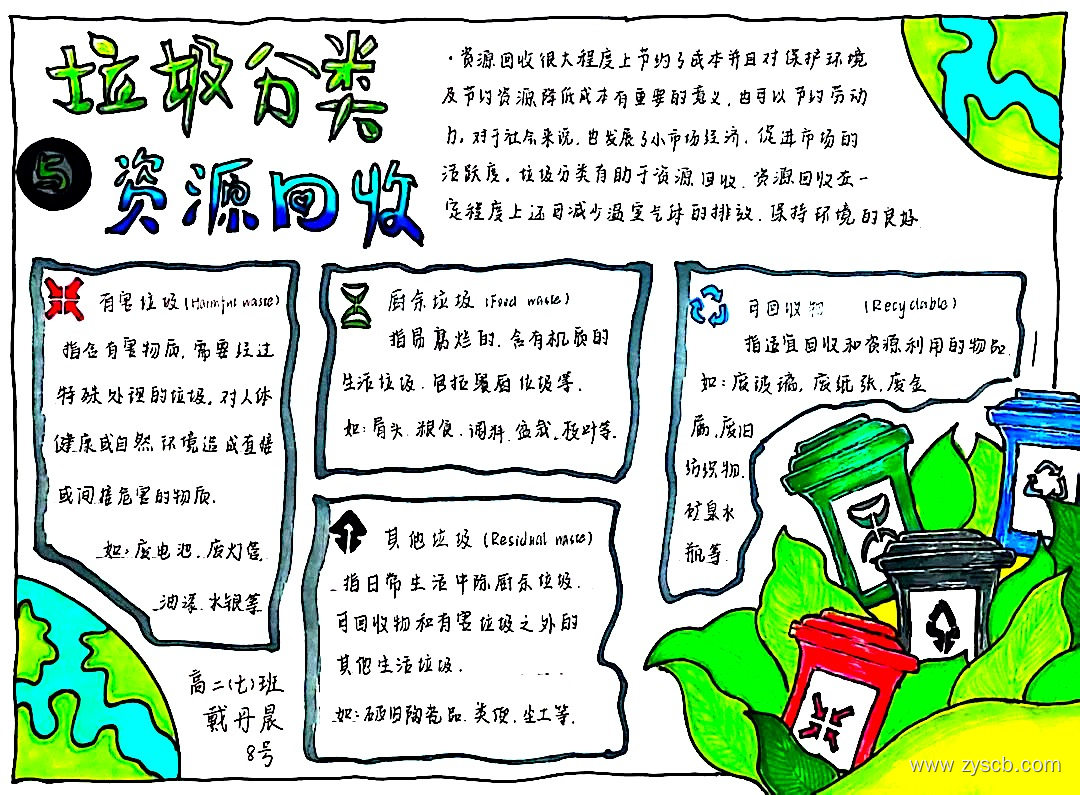 垃圾分类
与
资源回收
·资源回收很大程度上节约了成本并且对保护环境
及节约资源、降低成本有重要的意义，也可以节约劳动
力。对于社会来说，也发展了小市场经济，促进市场的
活跃度。垃圾分类有助于资源回收、资源回收在一
定程度上还可减少温室气体的排放、保持环境的良好
有害垃圾(Harmful waste)
指含有害物质，需要经过
特殊处理的垃圾。对人体
健康或自然环境造成直接
或间接危害的物质。
如：废电池、废灯管、
油漆、水银等
厨余垃圾 (Food waste)
指易腐烂的、含有机质的
生活垃圾、包括餐厨垃圾等。
如：骨头、粮食、调料、盆栽、枝叶等。
可回收物 (Recyclable)
指适宜回收和资源利用的物品
如：废玻璃，废纸张，废金
属，废旧
纺织物，
矿泉水
瓶等
其他垃圾 (Residual waste)
指日常生活中除厨余垃圾、
可回收物和有害垃圾之外的
其他生活垃圾。
如：破旧陶瓷品、粪便、尘土等。
高二(七)班
戴丹晨
8号
www zyscb.com